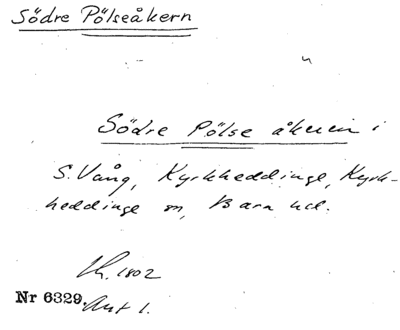 Södre Pölseåkern
Södre Pölse åkeren i
S. Vång, Kyrkheddinge, Kyrk-
heddinge sn, Bara hd.
Lh. 1802
Nr 6329. Akt 1.